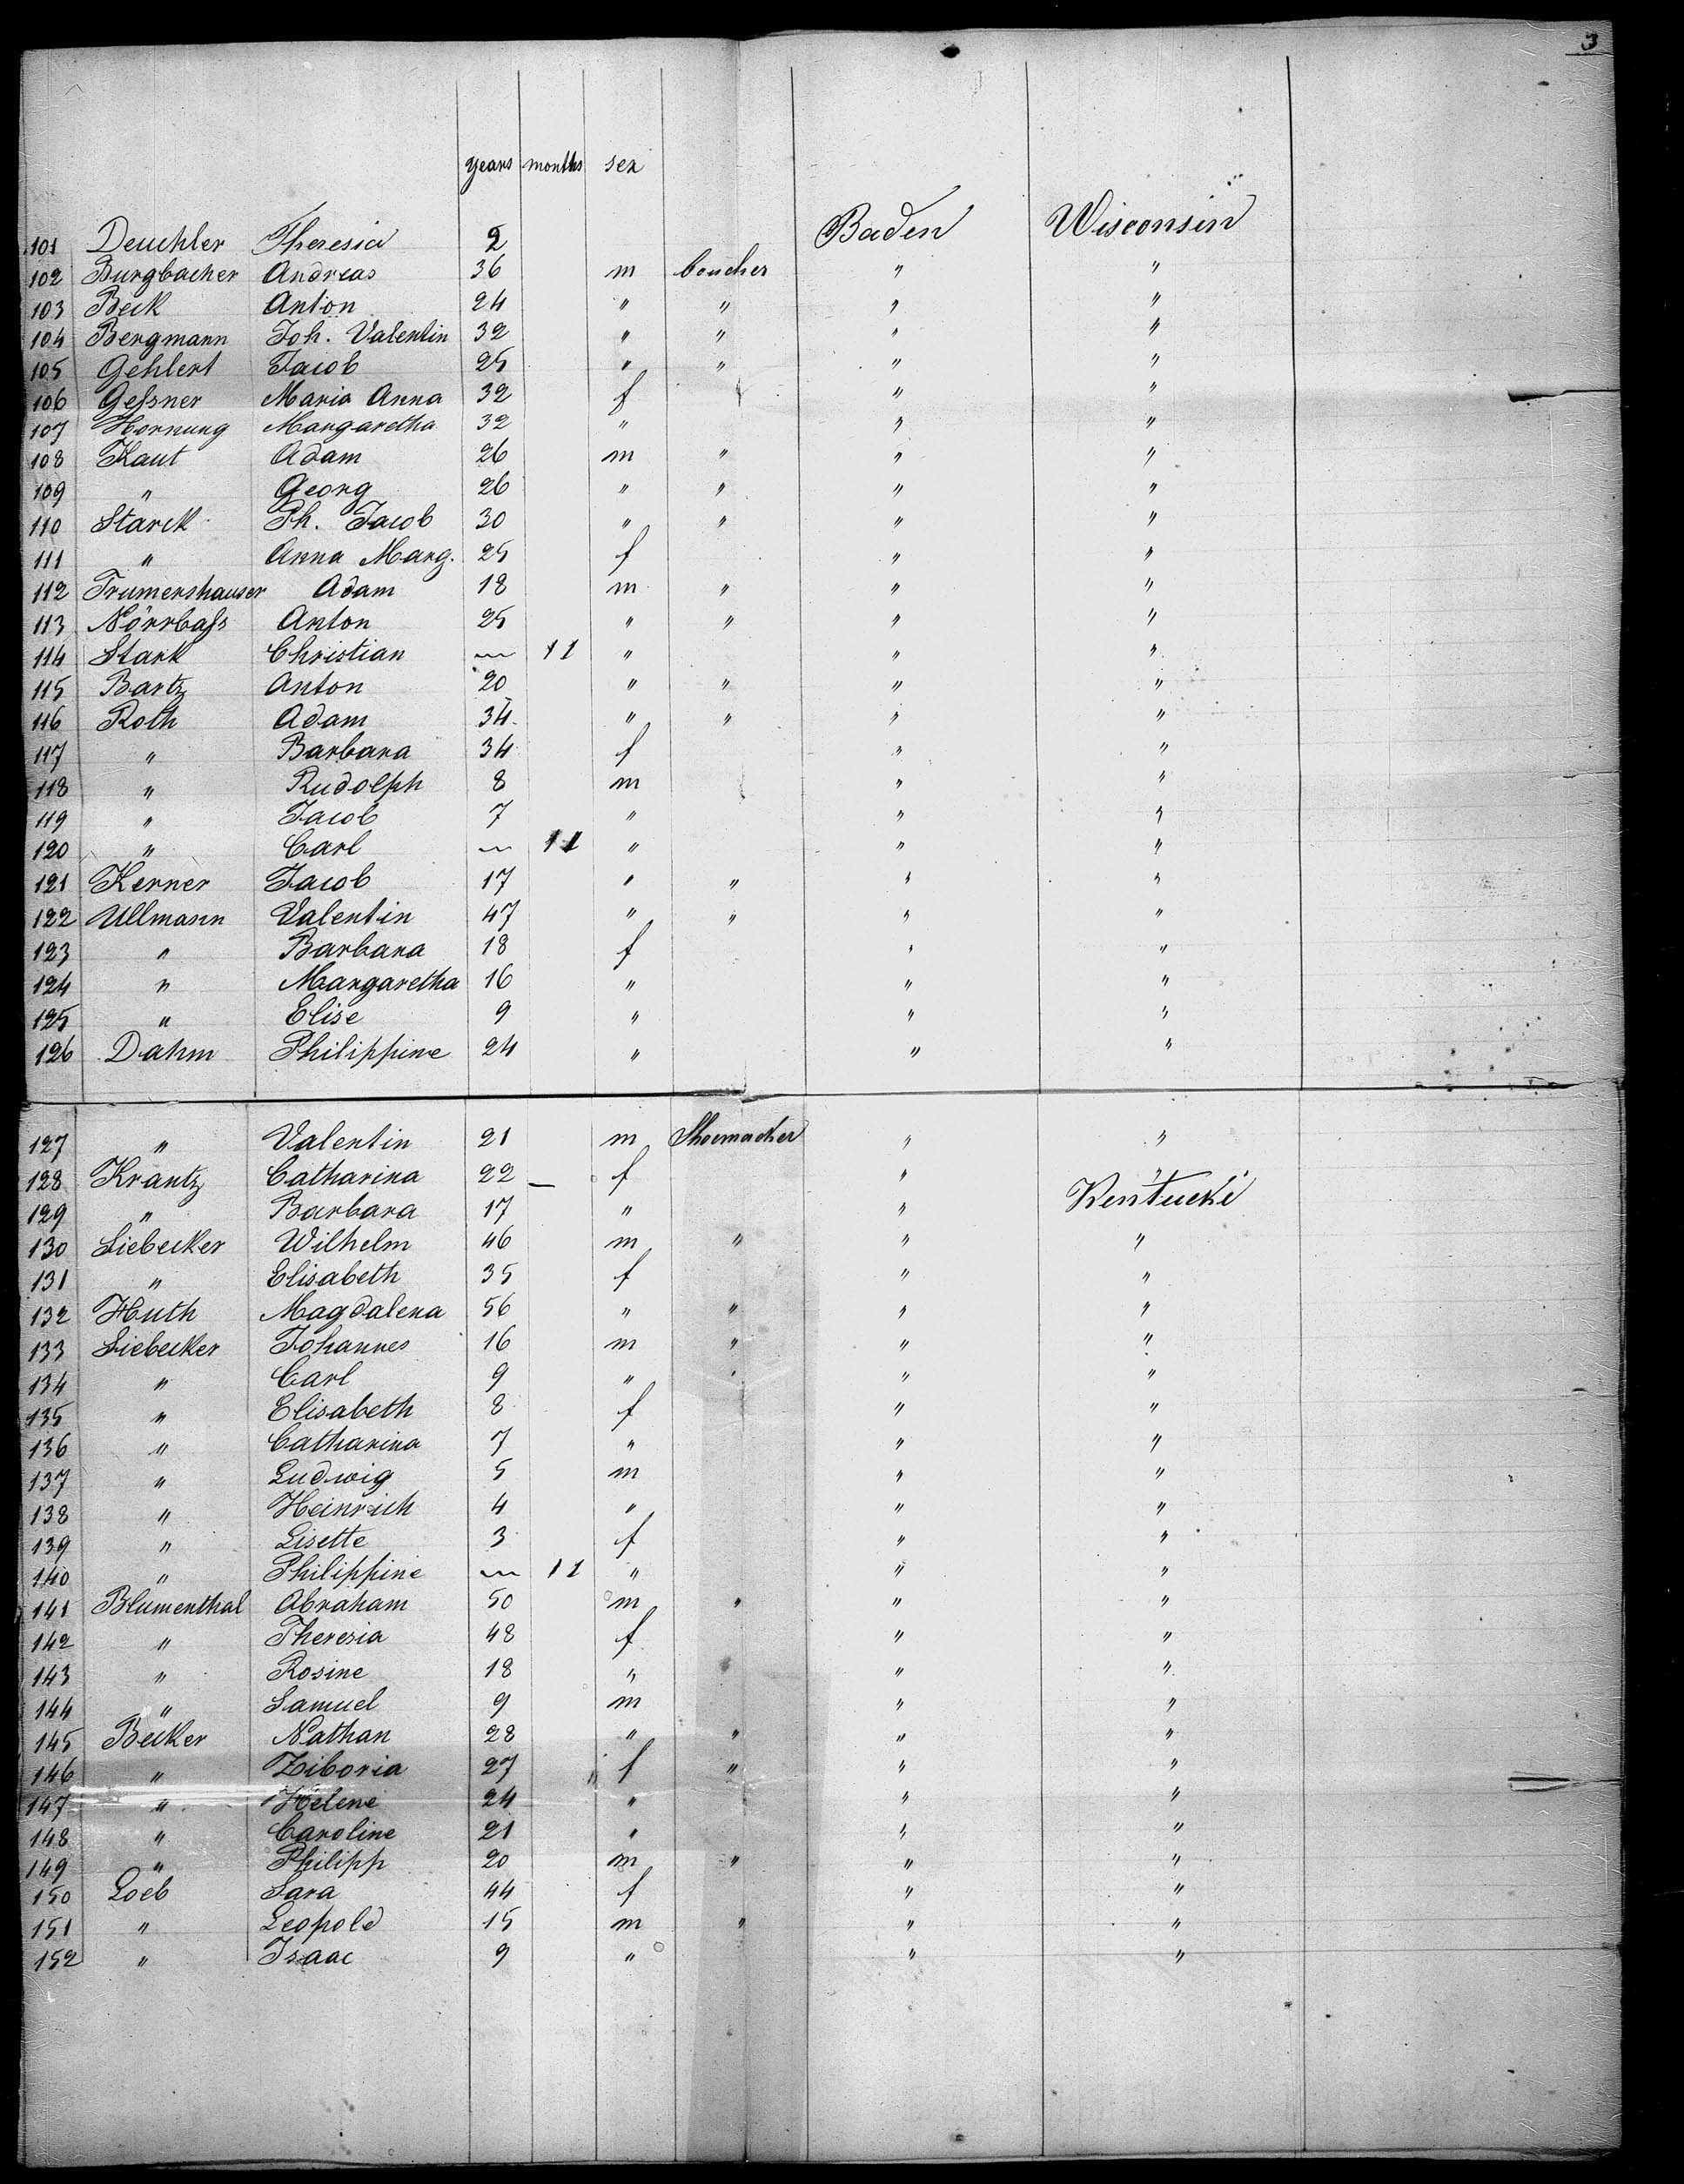 3
years months sex
101 Deuchler Theresia 2 Baden Wisconsin
102 Burgbacher Andreas 36 m boucher " "
103 Beck Anton 24 " " " "
104 Bergmann Joh. Valentin 32 " " " "
105 Gehlert Jacob 25 " " " "
106 Geſsner Maria Anna 32 f " "
107 Hornung Margaretha 32 " " "
108 Kaut Adam 26 m " " "
109 " Georg 26 " " " "
110 Starck Ph. Jacob 30 " " " "
111 " Anna Marg. 25 f " "
112 Trumershauser Adam 18 m " " "
113 Nörrbaſs Anton 25 " " " "
114 Stark Christian — 11 " " "
115 Bartz Anton 20 " " " "
116 Roth Adam 34 " " " "
117 " Barbara 34 f " "
118 " Rudolph 8 m " "
119 " Jacob 7 " " "
120 " Carl — 11 " " "
121 Kerner Jacob 17 " " " "
122 Ullmann Valentin 47 " " " "
123 " Barbara 18 f " "
124 " Margaretha 16 " " "
125 " Elise 9 " " "
126 Dahm Philippine 24 " " "
127 " Valentin 21 m Shoemacher " "
128 Krantz Catharina 22 — f " "
129 " Barbara 17 " " Kentucki
130 Liebecker Wilhelm 46 m " " "
131 " Elisabeth 35 f " "
132 Huth Magdalena 56 " " " "
133 Liebecker Johannes 16 m " " "
134 " Carl 9 " " " "
135 " Elisabeth 8 f " "
136 " Catharina 7 " " "
137 " Ludwig 5 m " "
138 " Heinrich 4 " " "
139 " Lisette 3 f " "
140 " Philippine — 11 " " "
141 Blumenthal Abraham 50 m " " "
142 " Theresia 48 f " "
143 " Rosine 18 " " "
144 " Samuel 9 m " "
145 Becker Nathan 28 " " " "
146 " Ziboria 27 " f " " "
147 " Helene 24 " " "
148 " Caroline 21 " " "
149 " Philipp 20 m " " "
150 Loeb Sara 44 f " "
151 " Leopold 15 m " " "
152 " Isaac 9 " " "